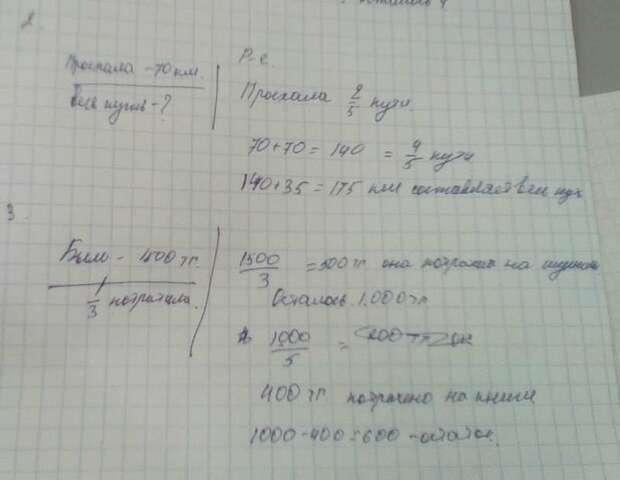 2.
Проехала - 70 км.
Весь путь - ?
Р. с.
Проехала 2/5 пути
70+70=140 = 4/5 пути
140+35=175 км составляет весь путь
3.
Было - 1500 тг.
1/3 потратила.
1500/3 = 500 тг. она потратила на
Осталось 1.000 тг
1000/5 =
400 тг потрачено на книги
1000-400=600 - остаток